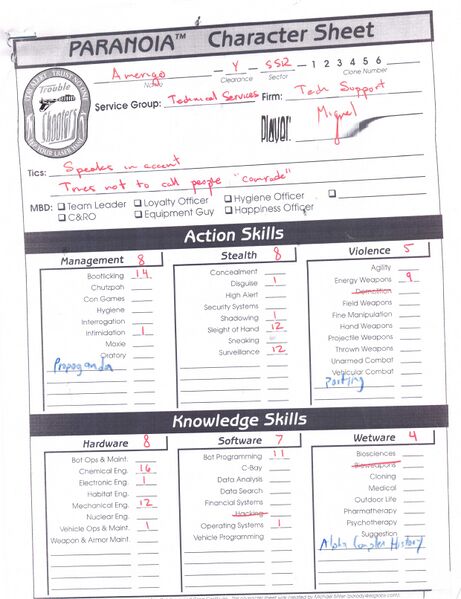 PARANOIA™ Character Sheet
STAY ALERT TRUST NO ONE
KEEP YOUR LASER HANDY
Trouble
Shooters
Amerigo Y SSR - 1 2 3 4 5 6
Name Clearance Sector Clone Number
Service Group: Technical Services Firm: Tech Support
Player: Miguel
Tics: Speaks in accent
Tries not to call people "comrade"
MBD: Team Leader Loyalty Officer Hygiene Officer
C&RO Equipment Guy Happiness Officer
Action Skills
Management 8
Bootlicking 14
Chutzpah
Con Games
Hygiene
Interrogation
Intimidation 1
Moxie
Oratory
Propaganda
Stealth 8
Concealment
Disguise 1
High Alert
Security Systems
Shadowing 1
Sleight of Hand 12
Sneaking
Surveillance 12
Violence 5
Agility
Energy Weapons 9
Demolition
Field Weapons
Fine Manipulation
Hand Weapons
Projectile Weapons
Thrown Weapons
Unarmed Combat
Vehicular Combat
Knowledge Skills
Hardware 8
Bot Ops & Maint.
Chemical Eng. 16
Electronic Eng. 1
Habitat Eng.
Mechanical Eng. 12
Nuclear Eng.
Vehicle Ops & Maint. 1
Weapon & Armor Maint.
Software 7
Bot Programming 11
C-Bay
Data Analysis
Data Search
Financial Systems
Hacking
Operating Systems 1
Vehicle Programming
Wetware 4
Biosciences
Bioweapons
Cloning
Medical
Outdoor Life
Pharmatherapy
Psychotherapy
Suggestion
Alpha Complex History